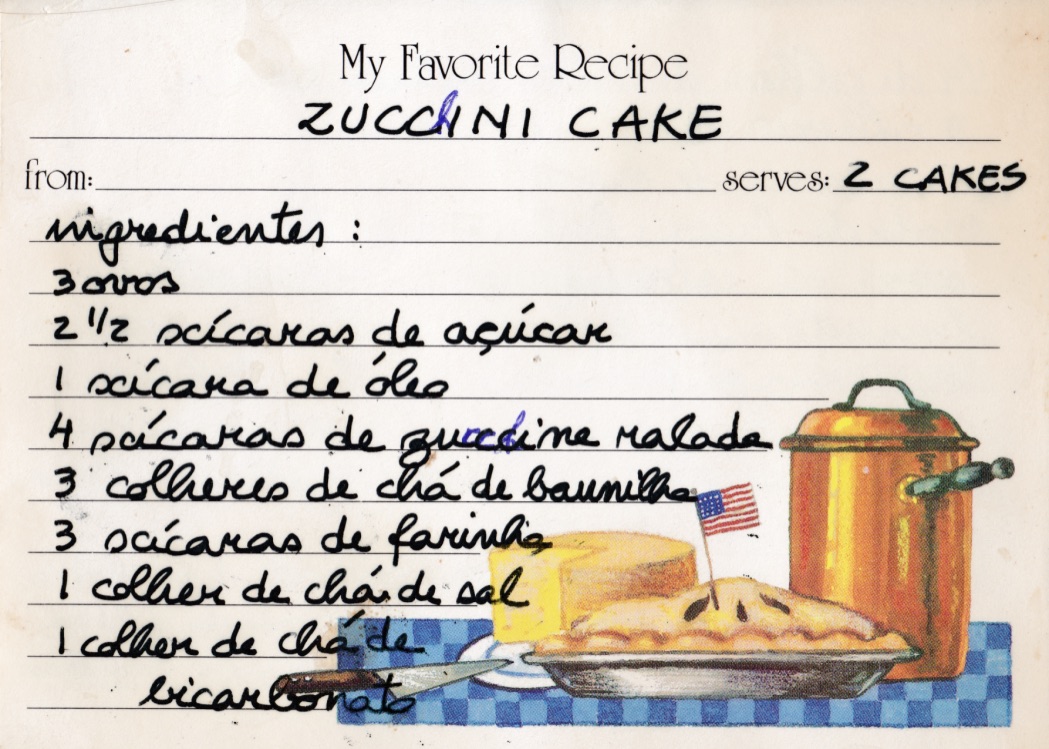 My Favorite Recipe
ZUCCHINI CAKE
from: serves: 2 CAKES
ingredientes :
3 ovos
2 1/2 xícaras de açúcar
1 xícara de óleo
4 xícaras de zucchine ralada
3 colheres de chá de baunilha
3 xícaras de farinha
1 colher de chá de sal
1 colher de chá de
bicarbonato